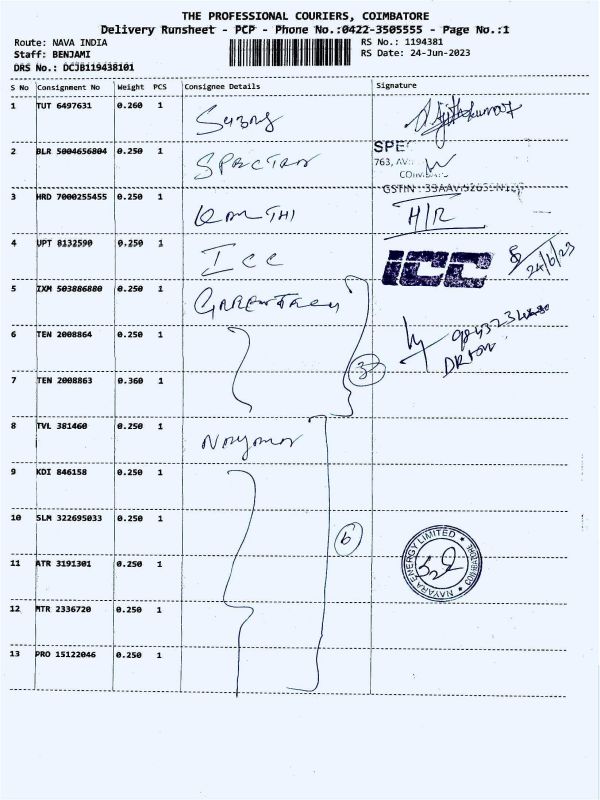 THE PROFESSIONAL COURIERS, COIMBATORE
Delivery Runsheet - PCP - Phone No.:0422-3505555 - Page No.:1
Route: NAVA INDIA RS No.: 1194381
Staff: BENJAMI RS Date: 24-Jun-2023
DRS No.: DCJB119438101
S No Consignment No Weight PCS Consignee Details Signature
1 TUT 6497631 0.260 1
2 BLR 5004656804 0.250 1 SPECTRA SPE
763, AV
COIMBATO
GSTIN :
3 HRD 7000255455 0.250 1 H/R
4 UPT 8132590 0.250 1 ICC ICC 24/6/23
5 IXM 503886880 0.250 1
6 TEN 2008864 0.250 1
7 TEN 2008863 0.360 1 3
8 TVL 381460 0.250 1
9 KDI 846158 0.250 1
10 SLM 322695033 0.250 1 6
NAYARA ENERGY LIMITED
11 ATR 3191301 0.250 1
12 MTR 2336720 0.250 1
13 PRO 15122046 0.250 1